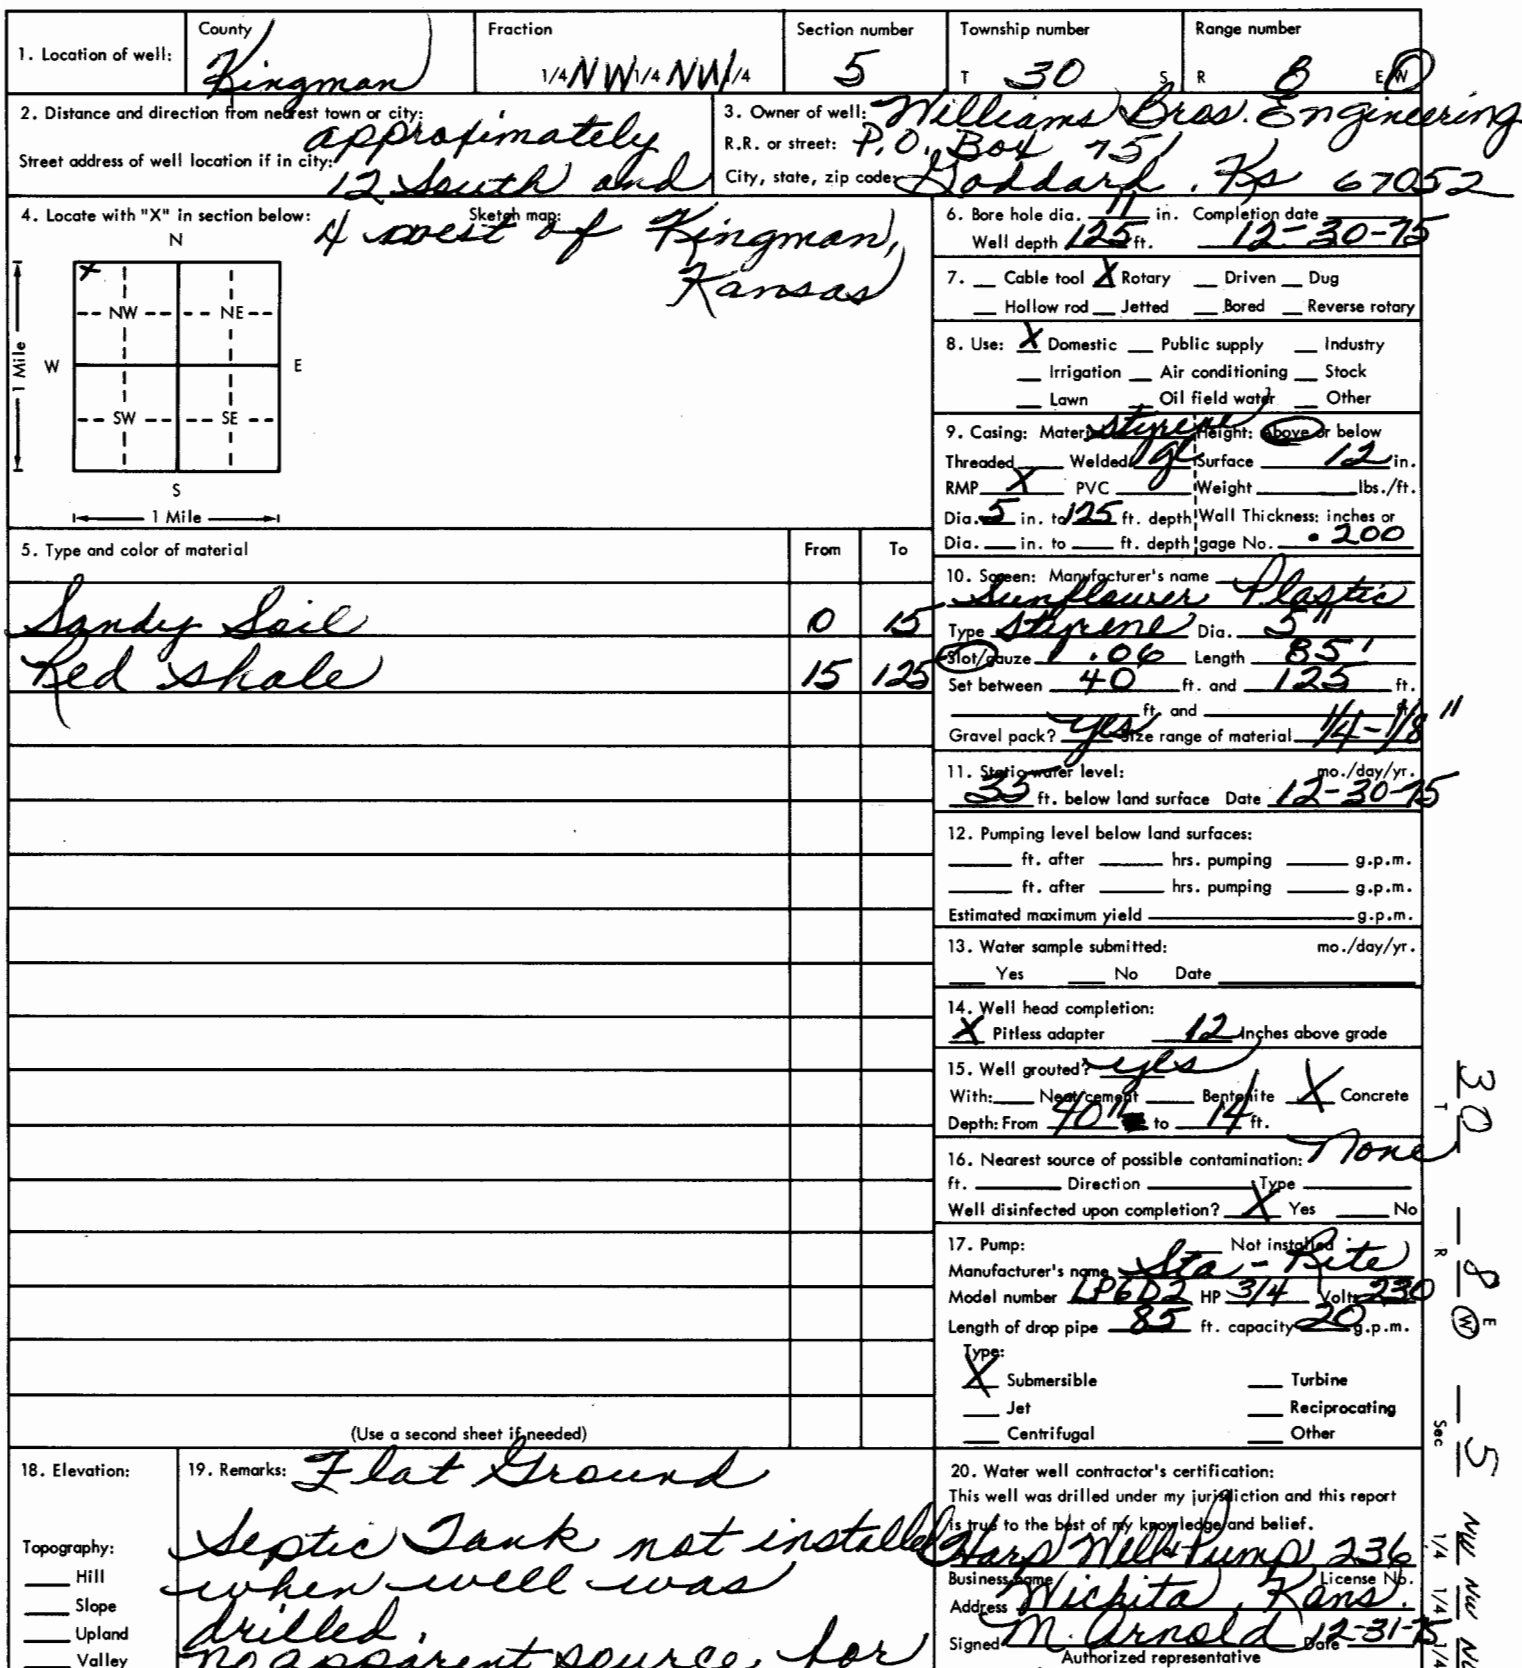 County Fraction Section number Township number Range number
1. Location of well: Kingman 1/4 NW 1/4 NW 1/4 5 T 30 S R 8 E W
2. Distance and direction from nearest town or city: approximately
Street address of well location if in city: 12 South and
4 west of Kingman,
Kansas
3. Owner of well: Williams Bros. Engineering
R.R. or street: P.O. Box 751
City, state, zip code: Goddard, Ks 67052
4. Locate with "X" in section below: Sketch map:
N
X
NW NE
W E
1 Mile
SW SE
S
1 Mile
5. Type and color of material From To
Sandy Soil 0 15
Red Shale 15 125
(Use a second sheet if needed)
6. Bore hole dia. 11 in. Completion date
Well depth 125 ft. 12-30-75
7. Cable tool X Rotary Driven Dug
Hollow rod Jetted Bored Reverse rotary
8. Use: X Domestic Public supply Industry
Irrigation Air conditioning Stock
Lawn Oil field water Other
9. Casing: Material Styrene Height: Above or below
Threaded Welded gl Surface 12 in.
RMP X PVC Weight lbs./ft.
Dia. 5 in. to 125 ft. depth Wall Thickness: inches or
Dia. in. to ft. depth gage No. .200
10. Screen: Manufacturer's name
Sunflower Plastic
Type Styrene Dia. 5"
Slot/gauze .06 Length 85'
Set between 40 ft. and 125 ft.
ft. and ft.
Gravel pack? yes Size range of material 1/4-1/8"
11. Static water level: mo./day/yr.
35 ft. below land surface Date 12-30-75
12. Pumping level below land surfaces:
ft. after hrs. pumping g.p.m.
ft. after hrs. pumping g.p.m.
Estimated maximum yield g.p.m.
13. Water sample submitted: mo./day/yr.
Yes No Date
14. Well head completion:
X Pitless adapter 12 Inches above grade
15. Well grouted? yes
With: Neat cement Bentonite X Concrete
Depth: From 40" to 14 ft.
16. Nearest source of possible contamination: None
ft. Direction Type
Well disinfected upon completion? X Yes No
17. Pump: Not installed
Manufacturer's name Sta-Rite
Model number LP6D2 HP 3/4 Volts 230
Length of drop pipe 85 ft. capacity 20 g.p.m.
Type:
X Submersible Turbine
Jet Reciprocating
Centrifugal Other
18. Elevation:
Topography:
Hill
Slope
Upland
Valley
19. Remarks: Flat Ground
Septic Tank not installed
when well was
drilled.
no apparent source for
20. Water well contractor's certification:
This well was drilled under my jurisdiction and this report
is true to the best of my knowledge and belief.
Harp Well & Pump 236
Business name License No.
Address Wichita, Kans.
Signed M. Arnold Date 12-31-75
Authorized representative
T 30 R 8 E W Sec 5 1/4 NW 1/4 NW 1/4